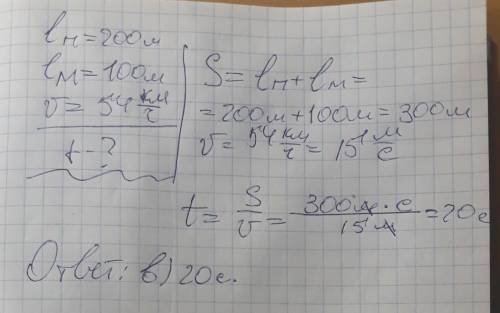 lп = 200м
lм = 100м
v = 54 км/ч
t - ?
S = lп + lм =
= 200м + 100м = 300м
v = 54 км/ч = 15 м/с
t = S/v = 300м·с/15м = 20с
Ответ: в) 20с.